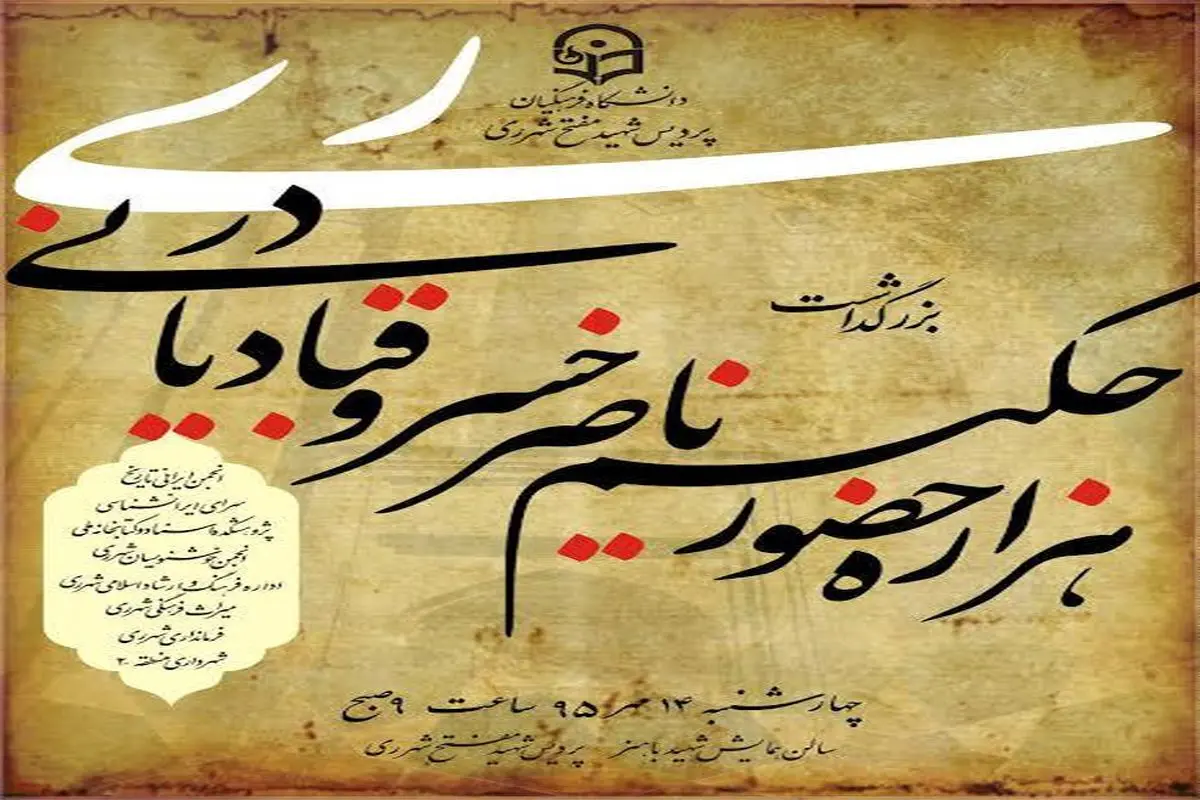 دانشگاه فرهنگیان
پردیس شهید مفتح شهرری
بزرگداشت
هزاره حضور
حکیم ناصر خسرو قبادیانی
در ری
انجمن ایرانی تاریخ
سرای ایرانشناسی
پژوهشکده اسناد و کتابخانه ملی
انجمن خوشنویسان شهرری
اداره فرهنگ و ارشاد اسلامی شهرری
میراث فرهنگی شهرری
فرمانداری شهرری
شهرداری منطقه ۲۰
چهارشنبه ۱۴ مهر ۹۵ ساعت ۹ صبح
سالن همایش شهید باهنر پردیس شهید مفتح شهرری